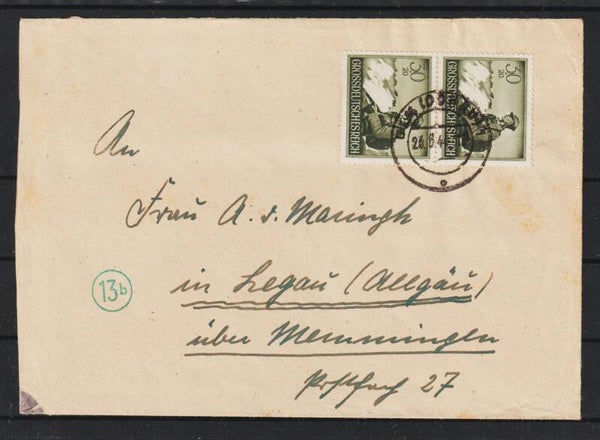 30
20
GROSSDEUTSCHES REICH
30
20
GROSSDEUTSCHES REICH
26.6.4
c
An
Frau A. v. Maringh
in Legau (Allgäu)
über Memmingen
Postfach 27
13b